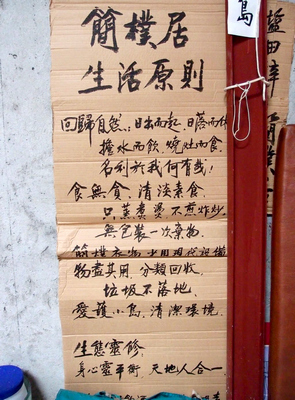 簡樸居
生活原則
回歸自然，日出而起，日落而休
擔水而飲，燒灶而食，
名利於我何有哉！
食無貪，清淡素食，
只蒸煮燙，不煎炸炒
無包裝一次棄物，
簡樸衣物 少用現代設備
物盡其用，分類回收，
垃圾不落地，
愛護小島，清潔環境，
生態靈修，
身心靈平衡，天地人合一
島
鹽田梓